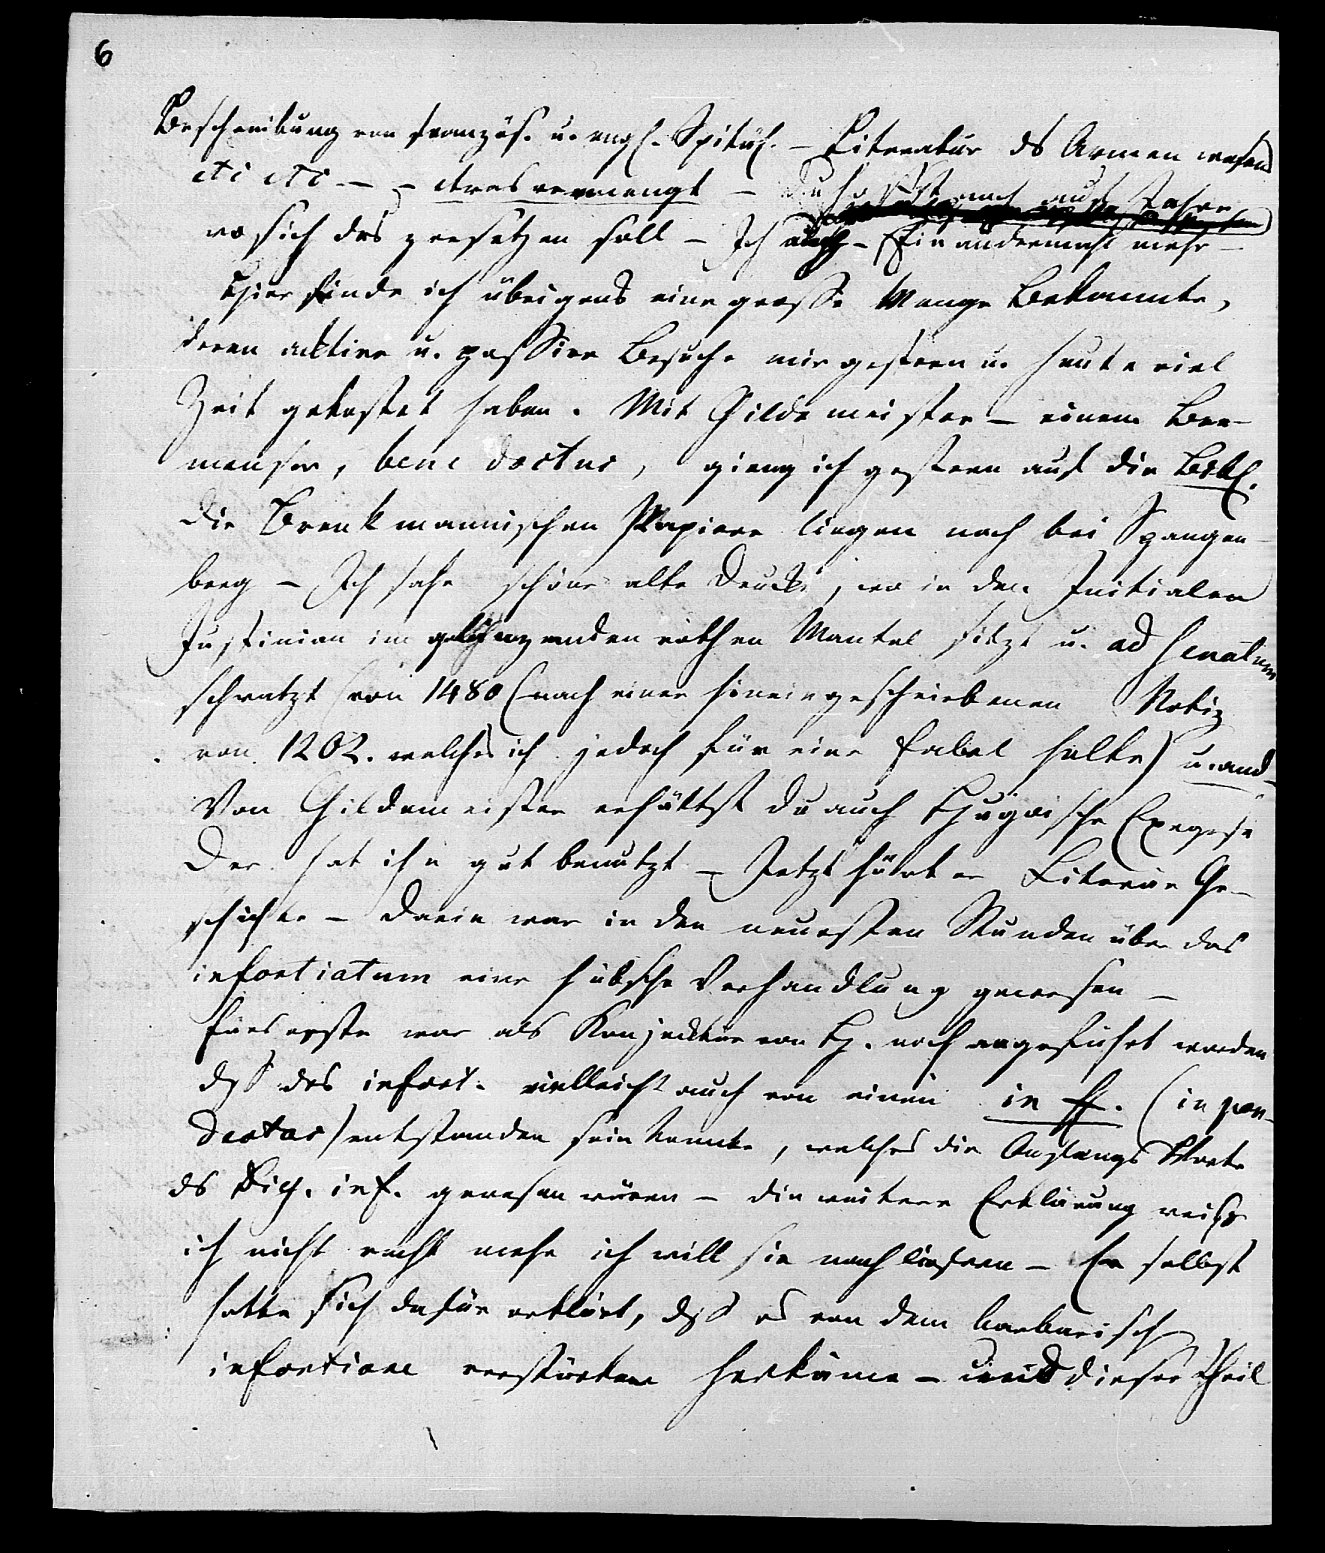 6
Beschreibung von französ. u. engl. Spitäl. – Literatur ds Armen wesens
etc etc – – etwas vermengt – du hast auch
wo sich das zersetzen soll – Ich auch – Ein andermahl mehr –
Hier finde ich übrigens eine große Menge Bekannte,
deren aktive u. passive Besuche mir gestern u. heute viel
Zeit gekostet haben. Mit Gildemeister – einem Bre-
menser, bene doctus, gieng ich gestern auf die Bibl.
die Brenkmannischen Papiere liegen noch bei Spangen-
berg – Ich sahe schöne alte Drucke, wo in den Initialen
Justinian im glänzenden rothen Mantel sitzt u. ad Senatum
schwatzt von 1480 (nach einer hineingeschriebenen Notiz
von 1202. welches ich jedoch für eine Fabel halte) u. and–
Von Gildemeister erhältst du auch Hugoische Exegese
Der hat ihn gut benutzt – Jetzt hört er Literär Ge-
schichte – darin war in den neuesten Stunden über das
infortiatum eine hübsche Verhandlung gewesen –
fürs erste war als Konjecktur von H. noch angeführt worden
dß das infort. vielleicht auch von einem in ff. (in pan-
dectas) entstanden sein könnte, welches die Anfangs Worte
ds Dig. inf. gewesen wären – die weitere Erklärung weiß
ich nicht recht mehr ich will sie nach liefern – Er selbst
hatte sich dafür erklärt, dß es von dem barbarisch
infortiare verstärken herkäme – und dieser Theil